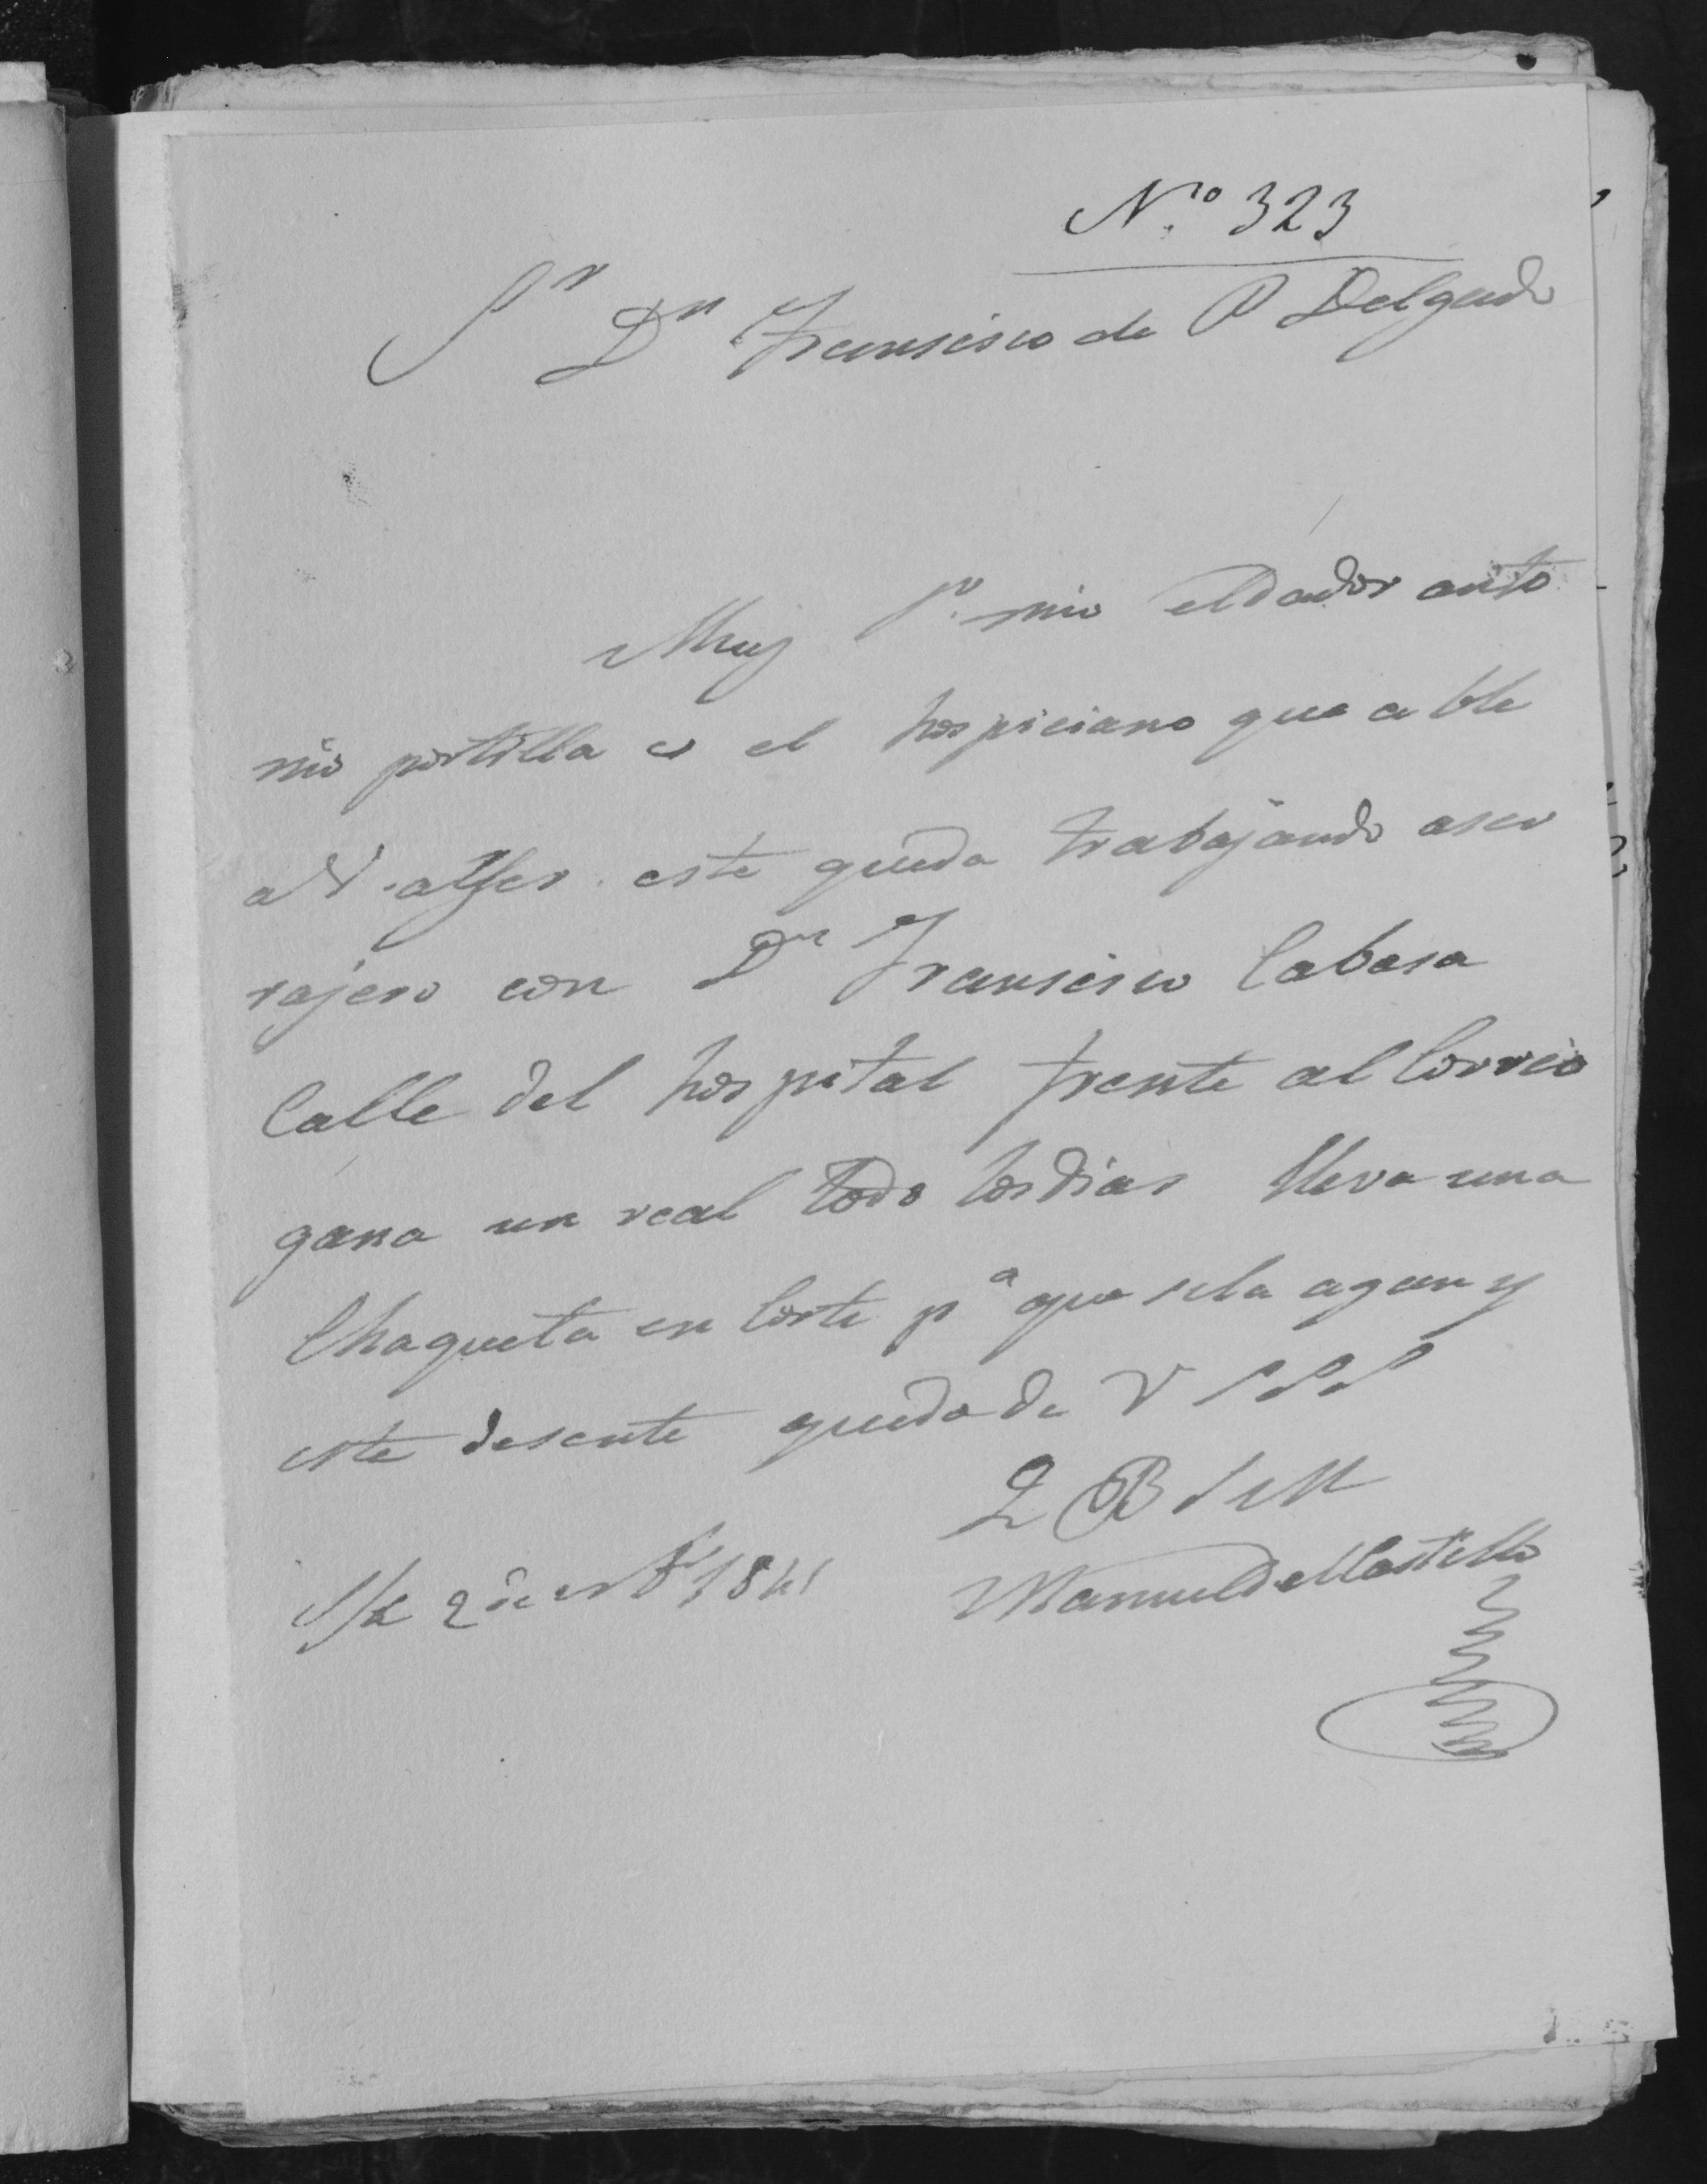 N.º 323
Sr Dn Fransisco de P Delgado
Muy Sr mio eldador anto
nio portilla es el hospiciano que able
a V. alfer este queda trabajando aser
rajero con Dn Fransisco Cabesa
Calle del hospital frente al Correo
gana un real todo losdias lleva una
Chaqueta en Corte pa que sela agan y
este desente quedade V S S S
Q B S M
S/c 2 de 1841 Manuel del Castillo